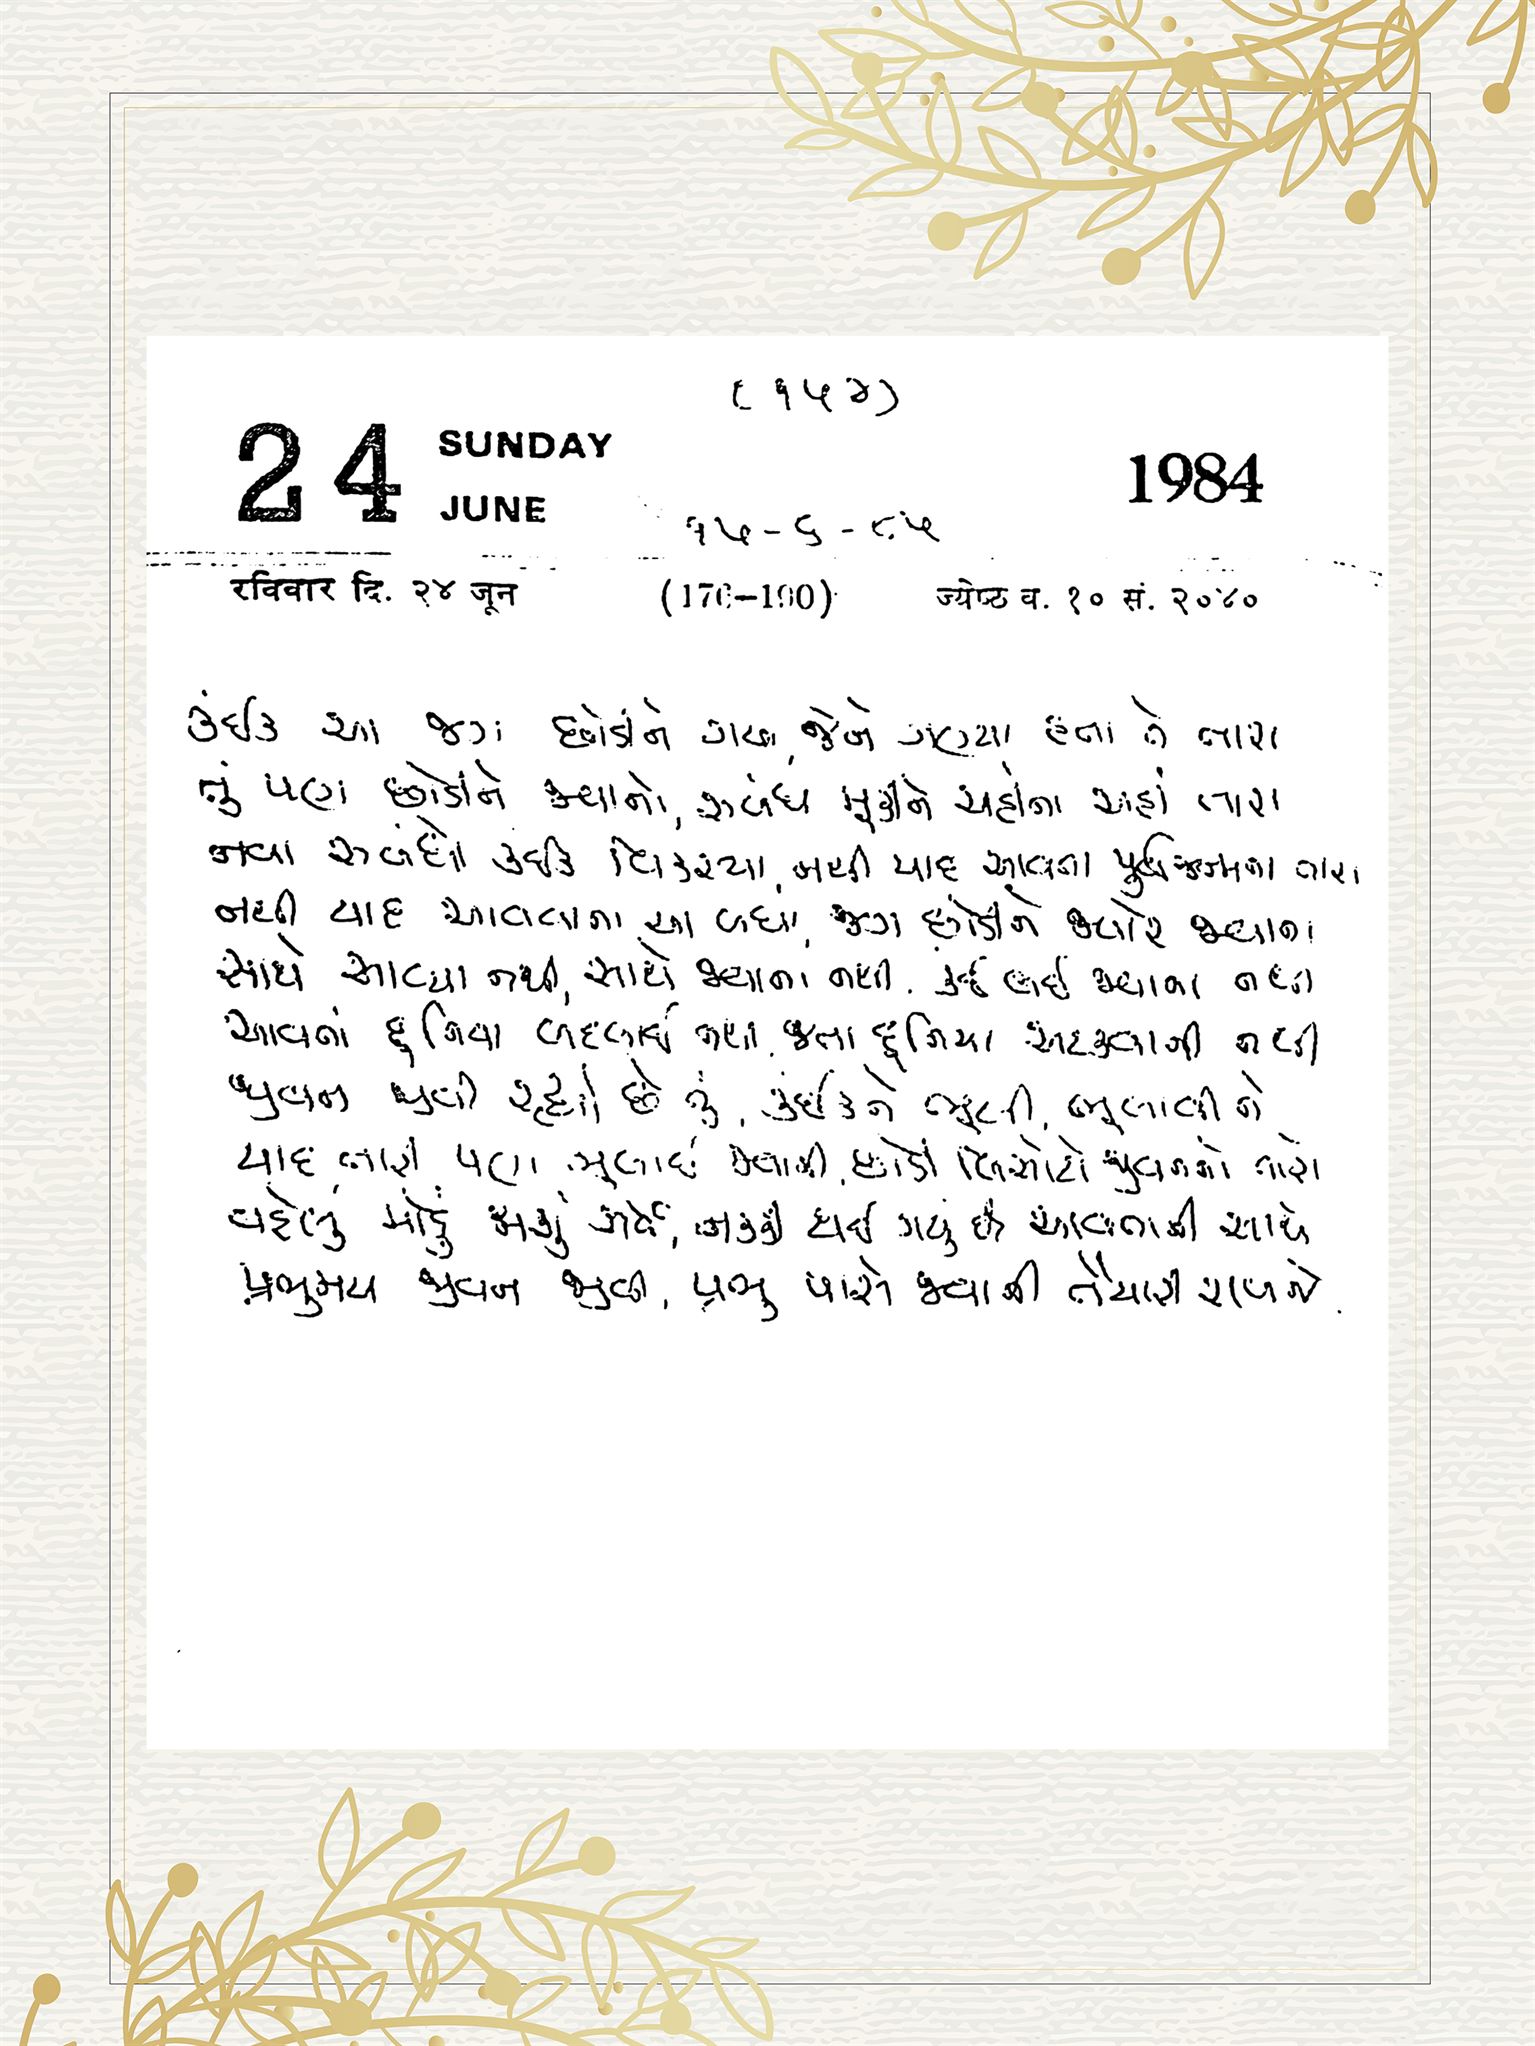 (૧૫૨)
24 SUNDAY JUNE 1984
૧૫-૬-૮૫
रविवार दि. २४ जून (176–190) ज्येष्ठ व. १० सं. २०४०
કંઈક આ જગ છોડીને ગયા, જેને ગણ્યા હતા તેં તારા
તું પણ છોડીને જવાનો, સંબંધ મૂકીને અહીંના અહીં તારા
નવા સંબંધો કંઈક વિકસ્યા, નથી યાદ આવતા પૂર્વજન્મના તારા
નથી યાદ આવવાના આ બધા, જગ છોડીને જ્યારે જવાના
સાથે આવ્યા નથી, સાથે જવાના નથી. કંઈ લઈ જવાના નથી
આવતાં દુનિયા બદલાઈ નથી. જતા દુનિયા અટકવાની નથી
જીવન જીવી રહ્યો છે તું, કંઈકને ભૂલી, ભૂલાવીને
યાદ તારી પણ ભૂલાઈ જવાની, છોડી લિસોટો જીવનનો તારો
વહેલું મોડું સહુ જાશે, નક્કી થઈ ગયું છે આવતાની સાથે
પ્રભુમય જીવન જીવી, પ્રભુ પાસે જવાની તૈયારી રાખજે.